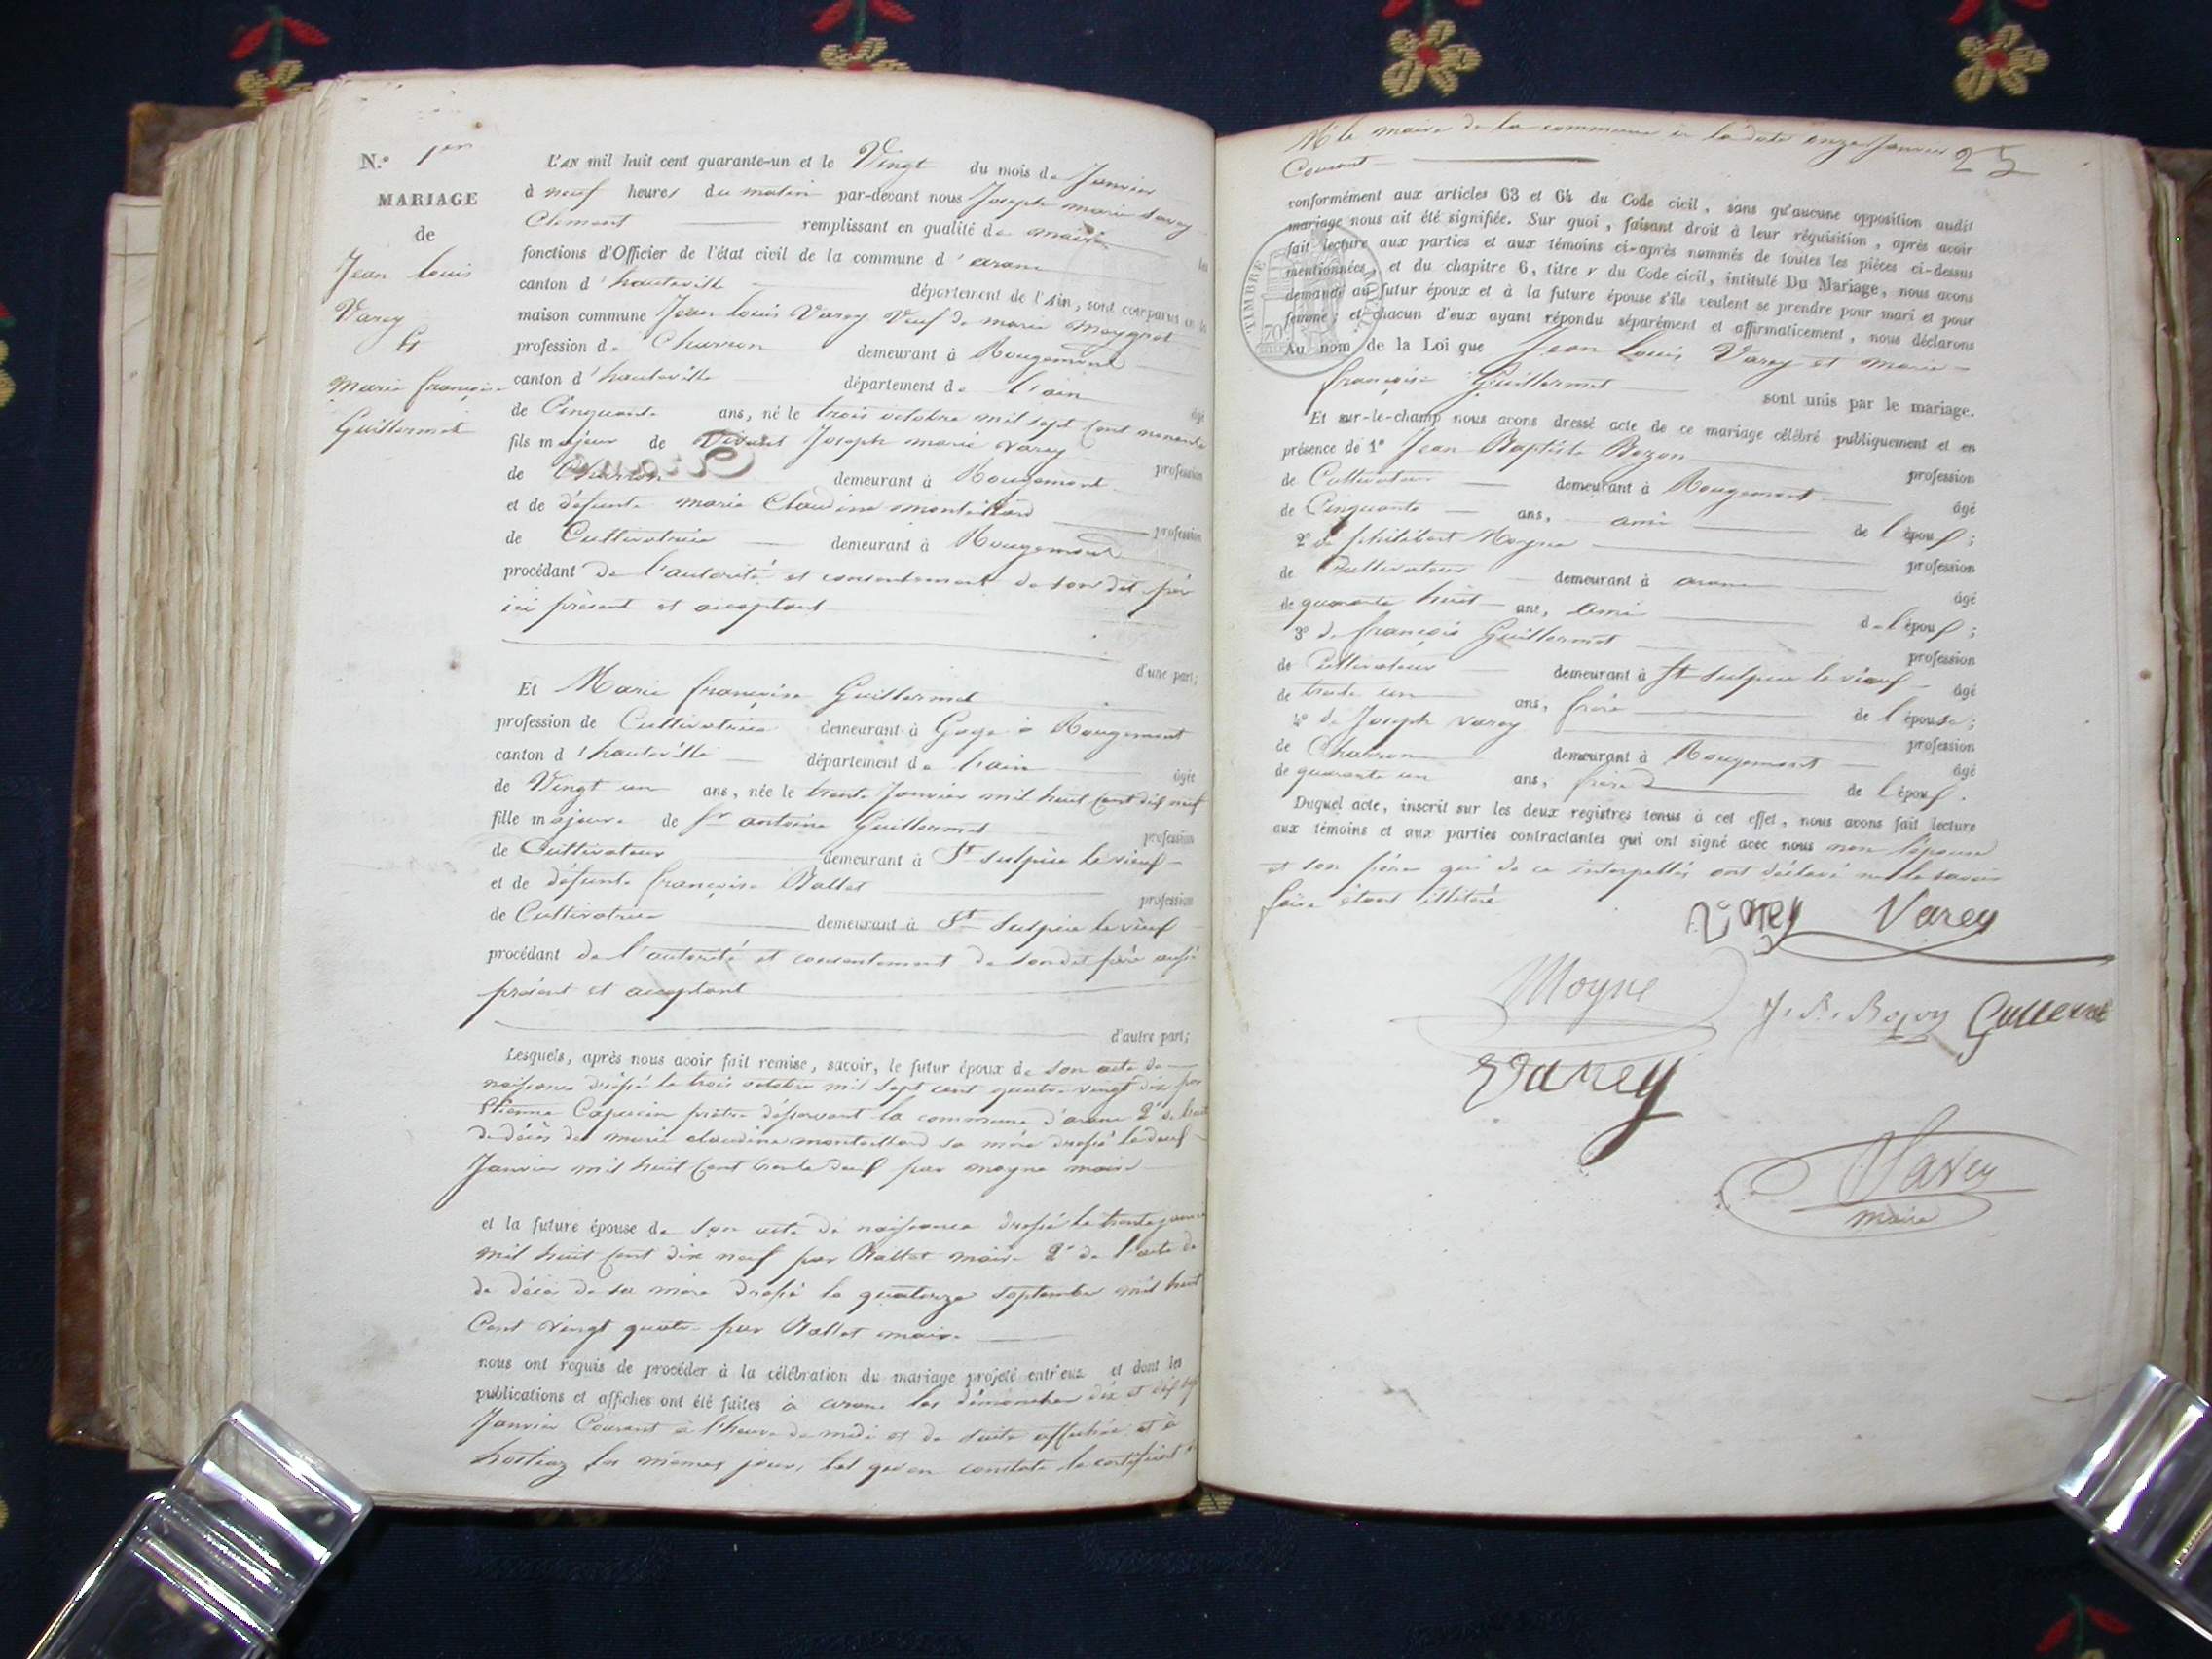 N.º 1er
MARIAGE
de
Jean Louis
Varey
Et
Marie françoise
Guillermet
L'AN mil huit cent quarante-un et le Vingt du mois de Janvier
à neuf heures du matin par-devant nous Joseph marie Savey
Clement remplissant en qualité de maire les
fonctions d'Officier de l'état civil de la commune d'arane
canton d'hauteville département de l'Ain, sont comparus en la
maison commune Jean Louis Varey Veuf de marie
profession de Charron demeurant à Rougemont
canton d'hauteville département de l'ain âgé
de Cinquante ans, né le trois octobre mil sept Cent nonante
fils majeur de Vivant Joseph marie varey profession
de Charron demeurant à Rougemont
et de défunte marie Claudine monteillard profession
de Cultivatrice demeurant à Rougemont
procédant de l'autorité et consentement de son dit père
ici présent et acceptant
d'une part;
Et Marie françoise Guillermet
profession de Cultivatrice demeurant à Gage à Rougemont
canton d'hauteville département de l'ain âgée
de Vingt un ans, née le trente Janvier mil huit Cent dix neuf
fille majeure de Sr antoine Guillermet profession
de Cultivateur demeurant à St Sulpice le vieux
et de défunte françoise Ballet profession
de Cultivatrice demeurant à St Sulpice le vieux
procédant de l'autorité et consentement de son dit père aussi
présent et acceptant
d'autre part;
Lesquels, après nous avoir fait remise, savoir, le futur époux de son acte de
naissance dressé le trois octobre mil sept cent quatre vingt dix par
Etienne Capucin prêtre désservant la commune d'arane 2º de
de décès de marie claudine monteillard sa mère dressé le deux
Janvier mil huit Cent trente deux par moyne maire
et la future épouse de son acte de naissance dressé le trente janvier
mil huit Cent dix neuf par Ballet maire 2º de l'acte de
de décès de sa mère dressé le quatorze septembre mil huit
Cent vingt quatre par Ballet maire
nous ont requis de procéder à la célébration du mariage projeté entr'eux et dont les
publications et affiches ont été faites à arane les dimanches dix et dix sept
Janvier Courant à l'heure de midi et de suite affichée et à
hostiaz les mêmes jours, tel qu'en constate le certificat de
Mr le maire de la commune en la date onze Janvier 25
Courant
conformément aux articles 63 et 64 du Code civil, sans qu'aucune opposition audit
mariage nous ait été signifiée. Sur quoi, faisant droit à leur réquisition, après avoir
fait lecture aux parties et aux témoins ci-après nommés de toutes les pièces ci-dessus
mentionnées, et du chapitre 6, titre V du Code civil, intitulé Du Mariage, nous avons
demandé au futur époux et à la future épouse s'ils veulent se prendre pour mari et pour
femme; et chacun d'eux ayant répondu séparément et affirmativement, nous déclarons
Au nom de la Loi que Jean Louis Varey et marie
françoise Guillermet sont unis par le mariage.
TIMBRE ROYAL
70
Et sur-le-champ nous avons dressé acte de ce mariage célébré publiquement et en
présence de 1º Jean Baptiste Bozon profession
de Cultivateur demeurant à Rougemont âgé
de Cinquante ans, ami de l'époux;
2º de philibert Moyne profession
de Cultivateur demeurant à arane âgé
de quarante huit ans, ami de l'époux;
3º de françois Guillermet profession
de Cultivateur demeurant à St Sulpice le vieux âgé
de trente un ans, frère de l'épouse;
4º de Joseph varey profession
de Charron demeurant à Rougemont âgé
de quarante un ans, frère de l'époux.
Duquel acte, inscrit sur les deux registres tenus à cet effet, nous avons fait lecture
aux témoins et aux parties contractantes qui ont signé avec nous non l'épouse
et son père qui de ce interpellés ont déclaré ne le savoir
faire étant illitéré
Varey Varey
Moyne J. B. Bozon Guillermet
Varey
Savey
maire